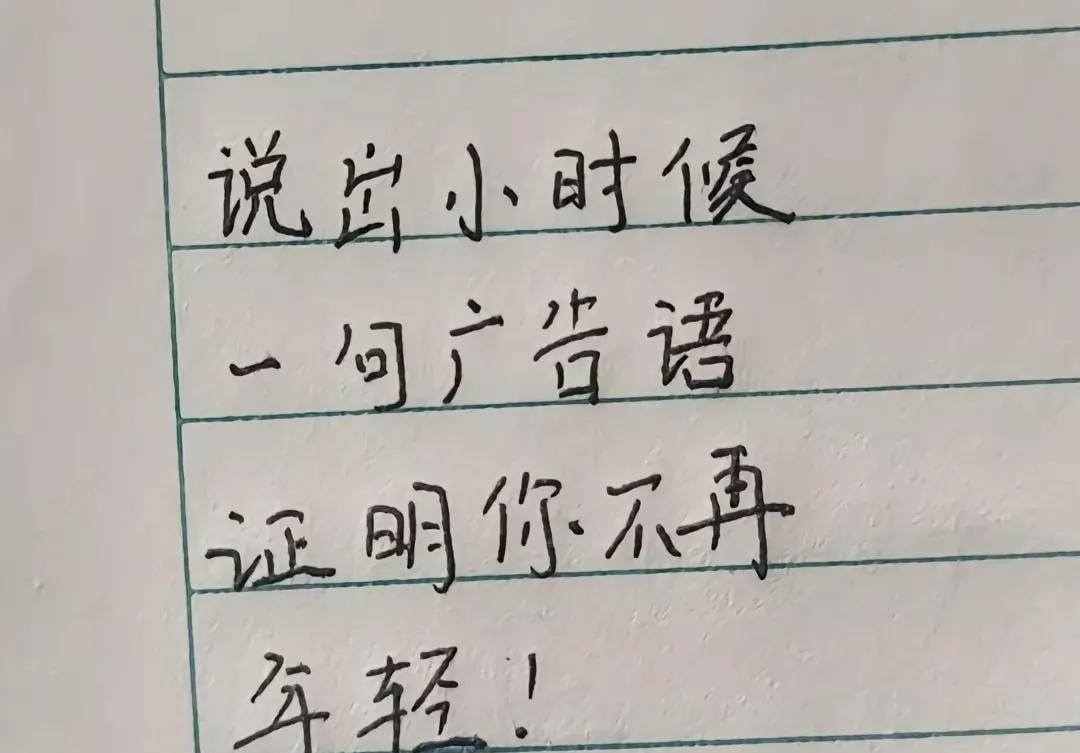 说出小时候
一句广告语
证明你不再
年轻！